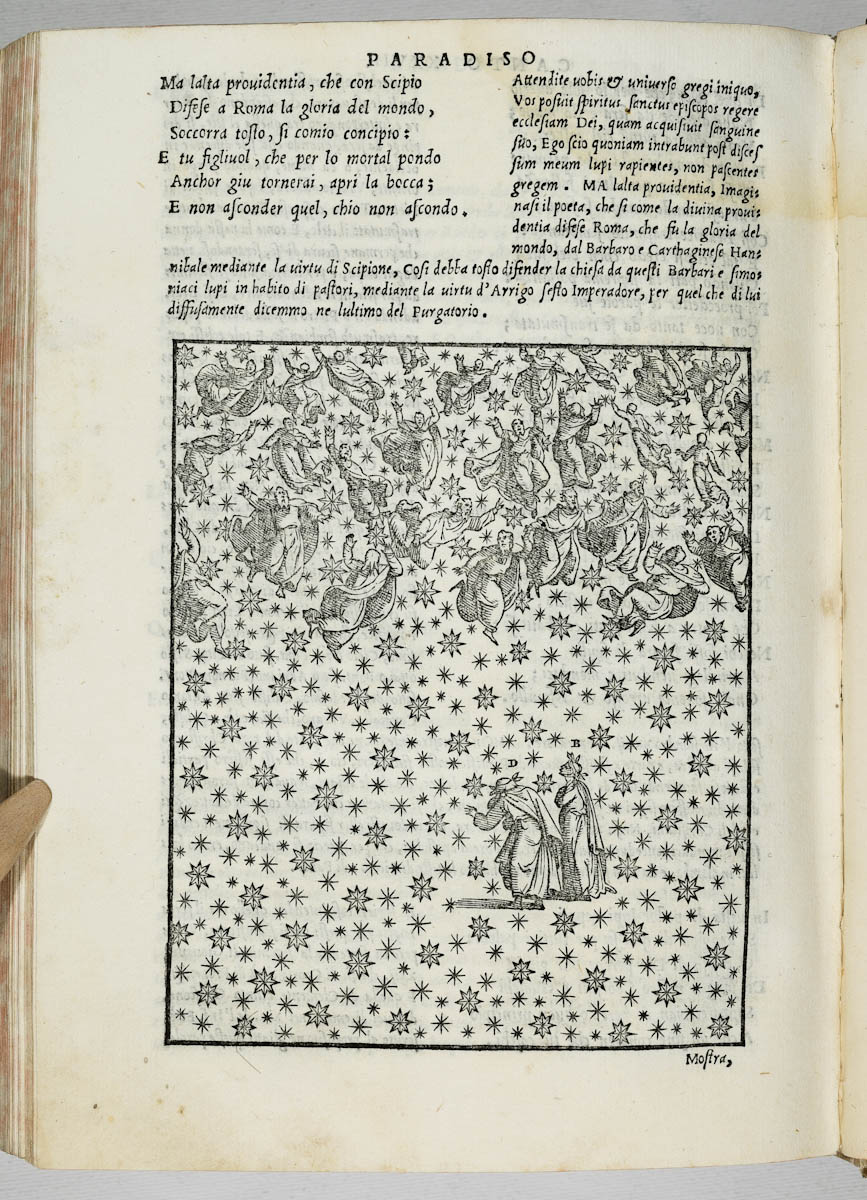 PARADISO
Ma lalta prouidentia, che con Scipio
Difese a Roma la gloria del mondo,
Soccorra tosto, si comio concipio:
E tu figliuol, che per lo mortal pondo
Anchor giu tornerai, apri la bocca;
E non asconder quel, chio non ascondo.
Attendite uobis & uniuerso gregi iniquo,
Vos posuit spiritus sanctus episcopos regere
ecclesiam Dei, quam acquisiuit sanguine
suo, Ego scio quoniam intrabunt post disces
sum meum lupi rapientes, non pascentes
gregem. MA lalta prouidentia, Imagi-
nasi il poeta, che si come la diuina proui-
dentia difese Roma, che fu la gloria del
mondo, dal Barbaro e Carthaginese Han-
nibale mediante la uirtu di Scipione, Cosi debba tosto difender la chiesa da questi Barbari e simo-
niaci lupi in habito di pastori, mediante la uirtu d'Arrigo sesto Imperadore, per quel che di lui
diffusamente dicemmo ne lultimo del Purgatorio.
D
B
Mostra,